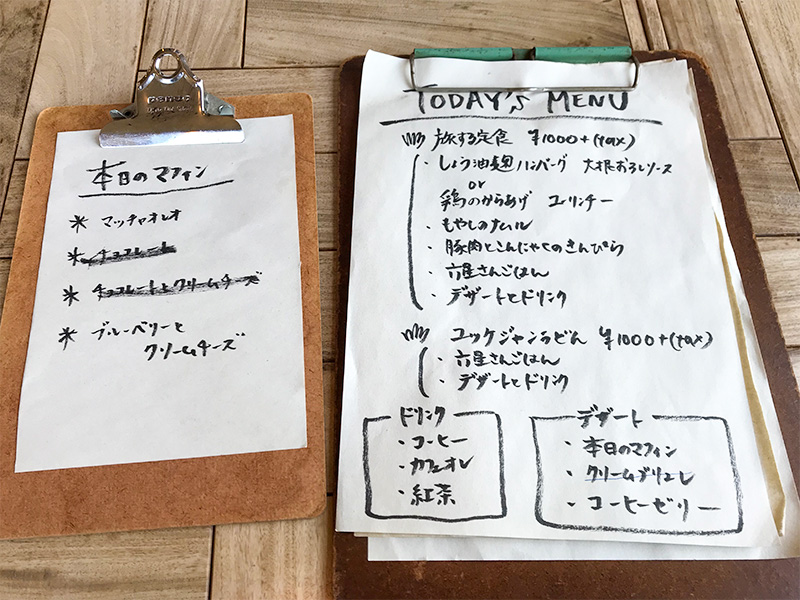 本日のマフィン
* マッチャオレオ
* チョコレート
* チョコレートとクリームチーズ
* ブルーベリーと
クリームチーズ
TODAY'S MENU
旅する定食 ¥1000+(tax)
・しょう油麹ハンバーグ 大根おろしソース
or
鶏のからあげ ユーリンチー
・もやしのナムル
・豚肉とこんにゃくのきんぴら
・六星さんごはん
・デザートとドリンク
ユッケジャンうどん ¥1000+(tax)
・六星さんごはん
・デザートとドリンク
ドリンク
・コーヒー
・カフェオレ
・紅茶
デザート
・本日のマフィン
・クリームブリュレ
・コーヒーゼリー